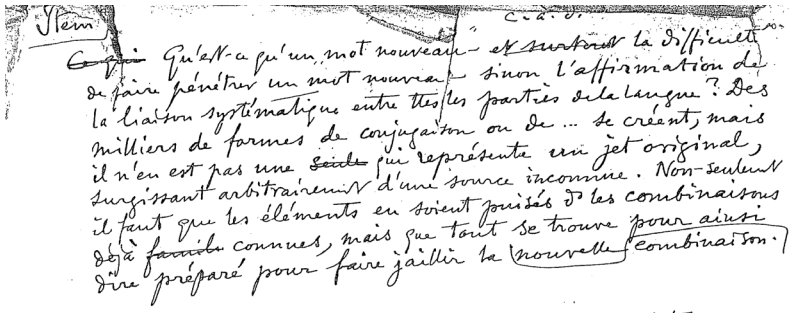 Item
c.-à.-d.
Ce qui Qu'est-ce qu'un mot nouveau - et surtout la difficulté
de faire pénétrer un mot nouveau - sinon l'affirmation de
la liaison systématique entre ttes les parties de la langue? Des
milliers de formes de conjugaison ou de ... se créent, mais
il n'en est pas une seule qui représente un jet original,
surgissant arbitrairemt d'une source inconnue. Non-seulemt
il faut que les éléments en soient puisés ds les combinaisons
déjà famili connues, mais que tout se trouve pour ainsi
dire préparé pour faire jaillir la nouvelle combinaison.